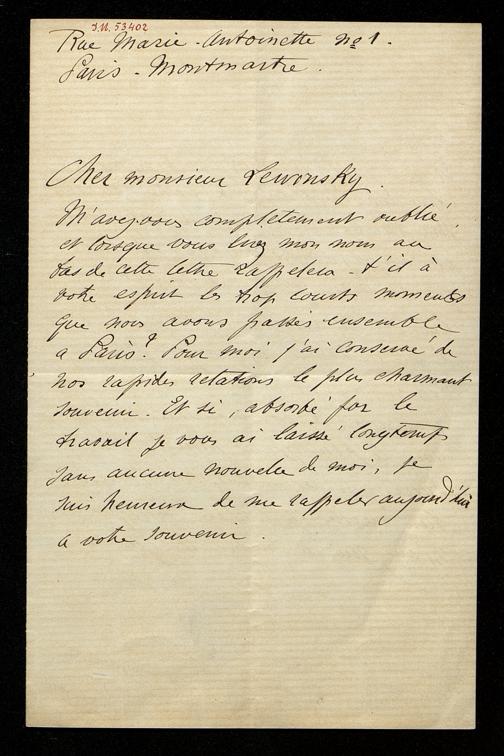 I.N. 53402
Rue Marie-Antoinette no 1.
Paris-Montmartre.
Cher monsieur Lewinsky.
M'avez vous completement oublié,
et lorsque vous lirez mon nom au
bas de cette lettre rappelera-t'il à
votre esprit les trop courts moments
que nous avons passés ensemble
a Paris? Pour moi j'ai conservé de
nos rapides relations le plus charmant
souvenir. Et si, absorbé par le
travail je vous ai laissé longtemps
sans aucune nouvelle de moi, je
suis heureux de me rappeler aujourd'hui
a votre souvenir.